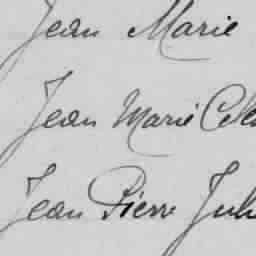 Jean Marie
Jean Marie
Jean Pierre